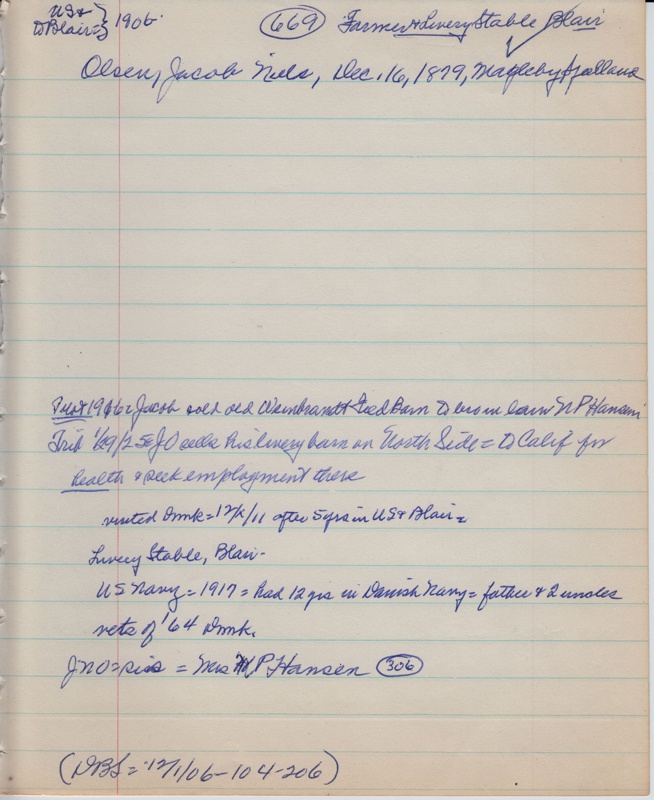 US & } 1906.
to Blair = }
669 Farmer & Livery Stable Blair
Olsen, Jacob Niels, Dec. 16, 1879, Magleby Sjælland
Pilot 1916 = Jacob sold old Feed Barn to bro in law N P Hansen
Trib 1/29/25 = J O sells his livery barn on North Side = to Calif for
health & seek employment there
visited Dmk = 12/ /11 after 5 yrs in US & Blair =
Livery Stable, Blair -
US Navy = 1917 = had 12 yrs in Danish Navy = father & 2 uncles
vets of '64 Dmk.
JNO = sis = Mrs N P Hansen 306
(DBS = 12/1/06 - 104 - 206)